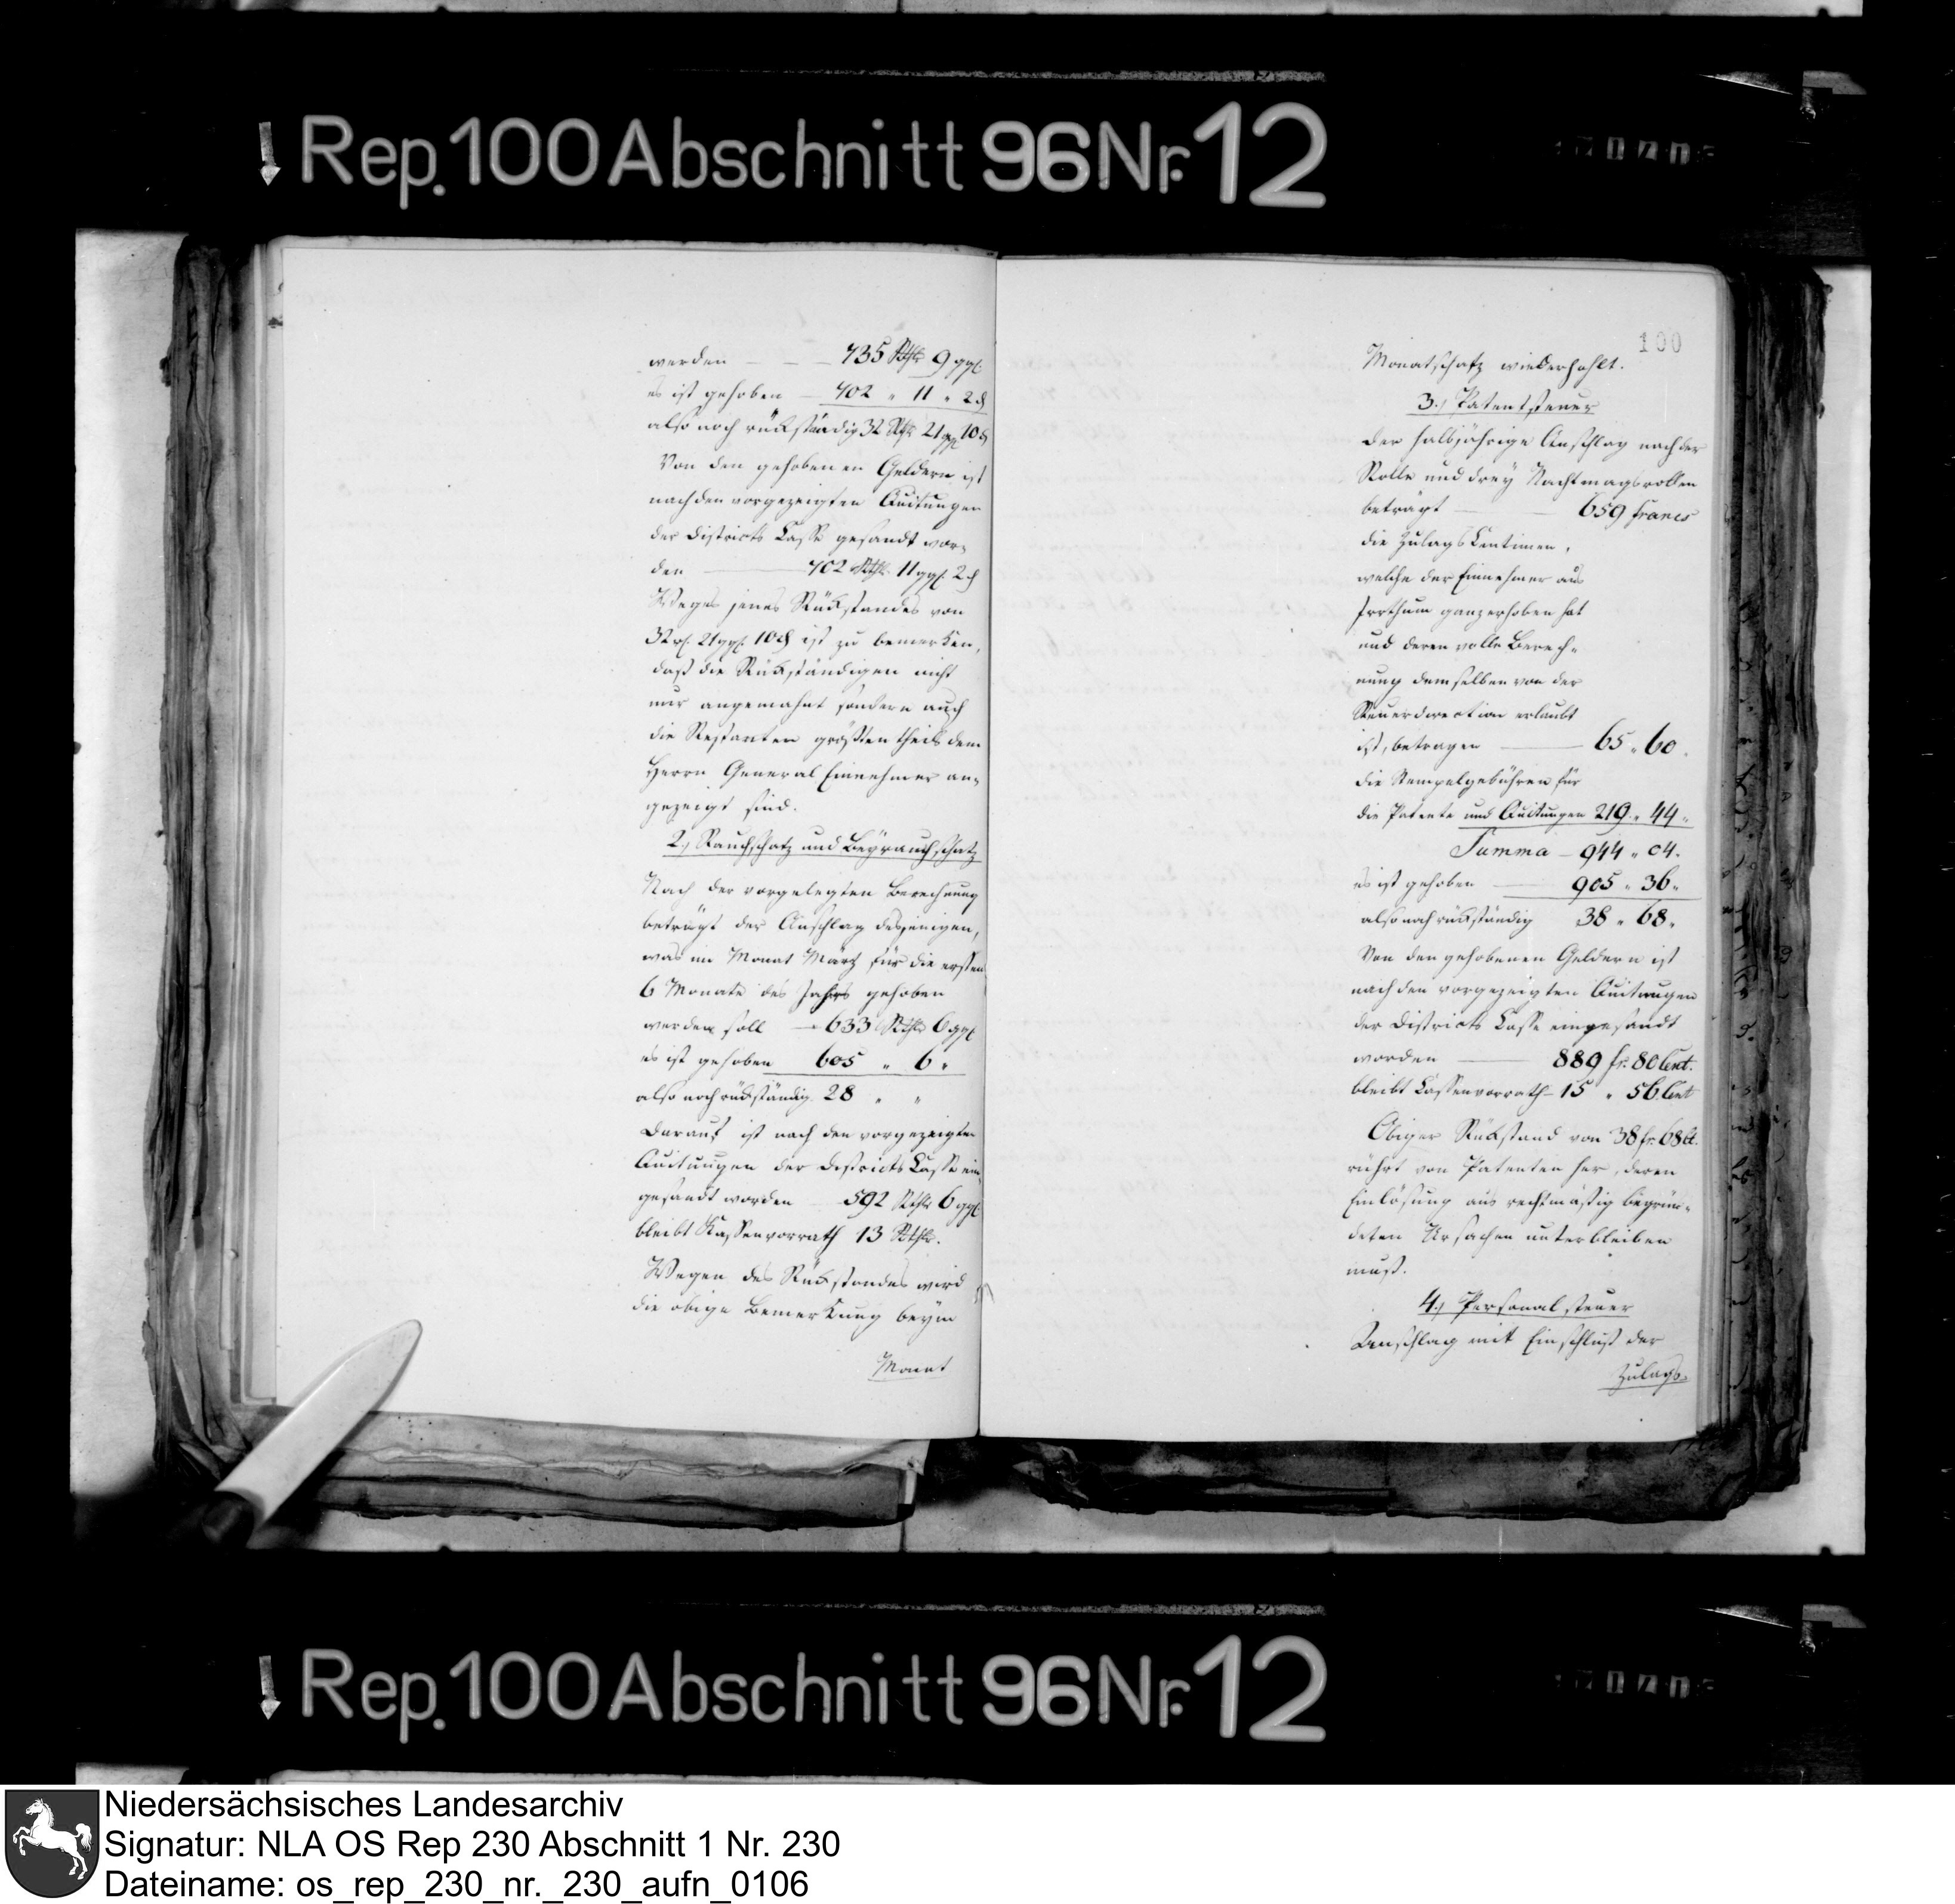 Rep. 100 Abschnitt 96 Nr. 12
werden — — — 735 Rthlr 9 ggl.
es ist gehoben — 702 " 11 " 2 ₰
also noch rükständig 32 Rthlr 21 ggl 10 ₰
Von den gehobenen Geldern ist
nach den vorgezeigten Quitungen
der Districts Casse gesandt wor-
den — 702 Rthlr. 11 ggl. 2 ₰
Wegen jenes Rükstandes von
32 rl. 21 ggl. 10 ₰ ist zu bemerken,
daß die Rükständigen nicht
nur angemahnt sondern auch
die Restanten größtentheils dem
Herrn General Einnehmer an-
gezeigt sind.
2.) Rauchschatz und Beyrauchschatz
Nach der vorgelegten Berechnung
beträgt der Anschlag desjenigen,
was im Monat März für die ersten
6 Monate des Jahrs gehoben
werden soll — 633 Rthlr 6 ggl
es ist gehoben 605 " 6 "
also noch rükständig 28 " "
Darauf ist nach den vorgezeigten
Quitungen der Districts Casse ein
gesandt worden — 592 Rthlr 6 ggl.
bleibt Kassenvorrath 13 Rthlr.
Wegen des Rükstandes wird
die obige Bemerkung beym
Monat
100
Monatschatz wiederhohlt.
3.) Patentsteuer
Der halbjährige Anschlag nach der
Rolle und drey Nachtragsrollen
beträgt — 659 francs
die Zulags Centimen,
welche der Einnehmer aus
Irrthum ganz erhoben hat
und deren volle Berech-
nung demselben von der
Steuerdirection erlaubt
ist, betragen — 65 " 60.
die Stempelgebühren für
die Patente und Quitungen 219 " 44 "
Summa — 944 " 04.
es ist gehoben — 905 " 36 "
also noch rükständig 38 " 68 "
Von den gehobenen Geldern ist
nach den vorgezeigten Quitungen
der Districts Casse eingesandt
worden — 889 fr. 80 Cent.
bleibt Cassenvorrath — 15 " 56 Cent
Obiger Rükstand von 38 fr. 68 Ct.
rührt von Patenten her, deren
Einlösung aus rechtmäßig begrün-
deten Ursachen unterbleiben
muß.
4.) Personalsteuer
Anschlag mit Einschluß der
Zulags-
Rep. 100 Abschnitt 96 Nr. 12
Niedersächsisches Landesarchiv
Signatur: NLA OS Rep 230 Abschnitt 1 Nr. 230
Dateiname: os_rep_230_nr._230_aufn_0106